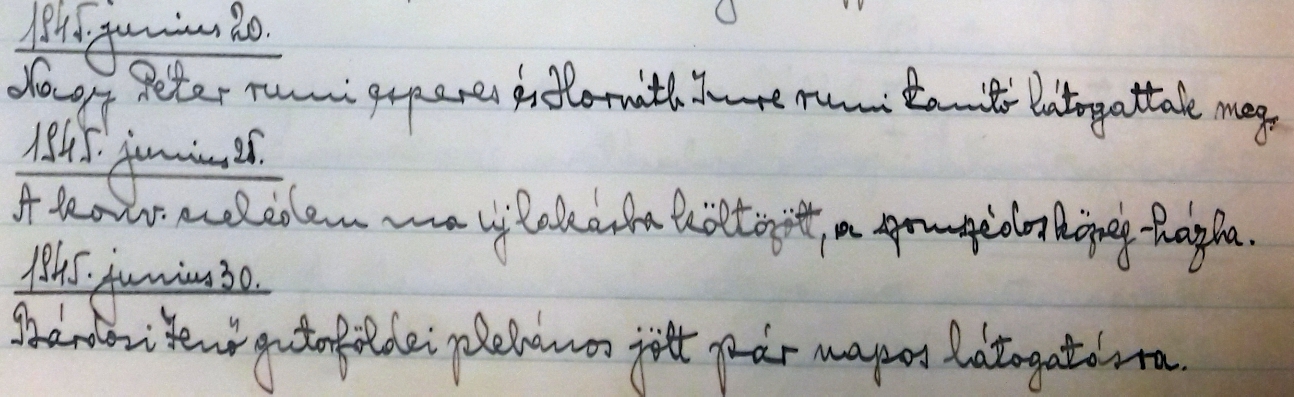 1945. junius 20.
Nagy Péter rumi esperes és Horváth Imre rumi tanító látogattak meg.
1945. junius 25.
A konv. cselédem ma új lakásba költözött, a szomszédos község-házba.
1945. junius 30.
Bárdosi Jenő gutorföldei plebános jött pár napos látogatásra.